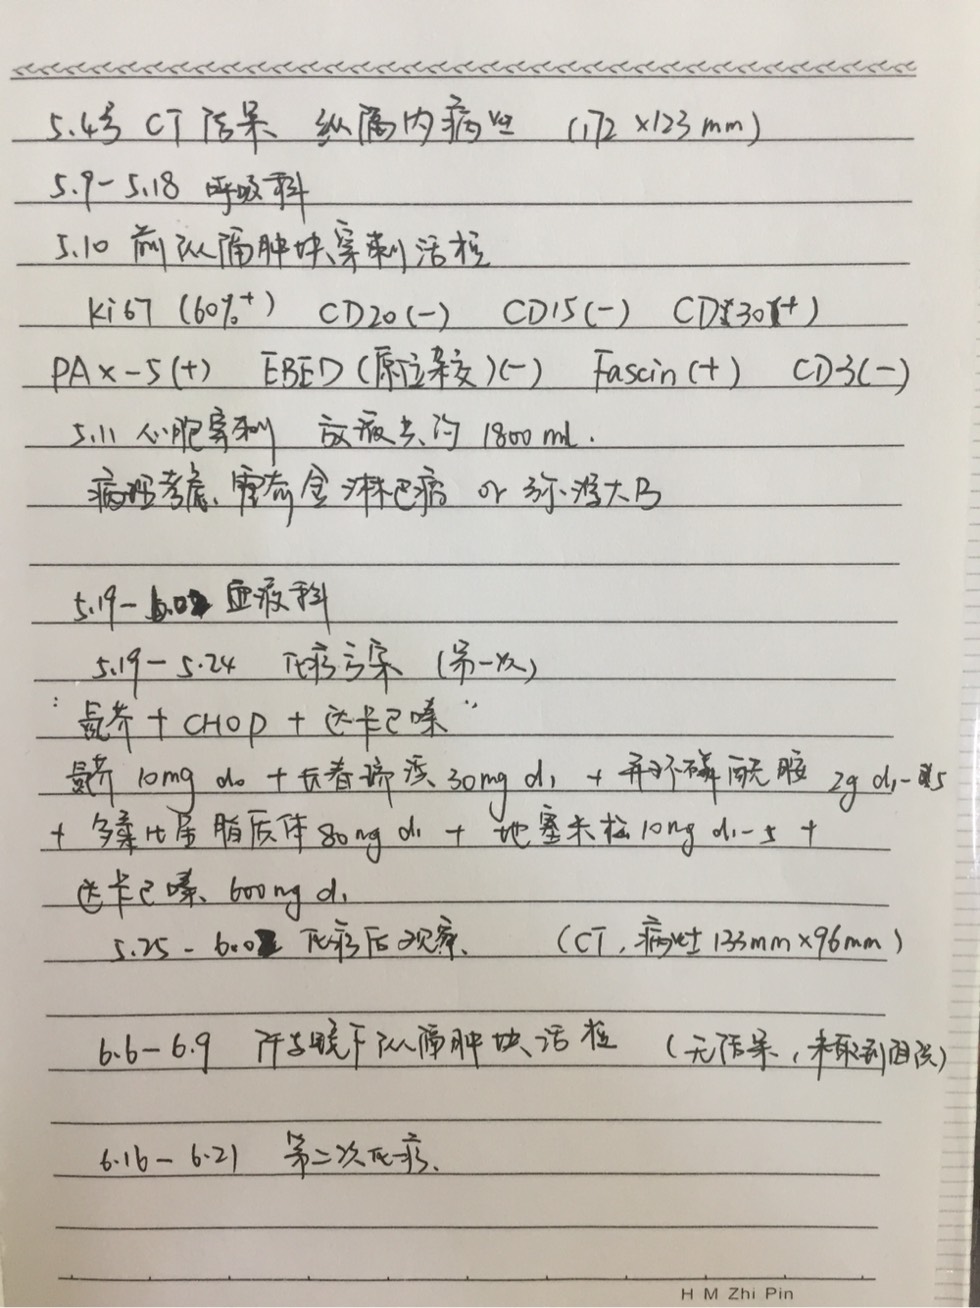 5.4号 CT结果 纵隔内病灶 (172×123mm)
5.9-5.18 呼吸科
5.10 前纵隔肿块穿刺活检
Ki67 (60%+) CD20(-) CD15(-) CD30(+)
PAX-5(+) EBED(原位杂交)(-) Fascin(+) CD3(-)
5.11 心胞穿刺 放液共约1800ml.
病理考虑、霍奇金淋巴病 or 弥漫大B
5.19-6.02 血液科
5.19-5.24 化疗方案 (第一次)
"氮芥+CHOP+达卡巴嗪"
氮芥10mg d0 + 长春 30mg d1 + 异环磷酰胺 2g d1-5
+ 多柔比星脂质体80mg d1 + 地塞米松10mg d1-5 +
达卡巴嗪、600mg d1
5.25-6.02 化疗后观察. (CT, 病灶133mm×96mm)
6.6-6.9 纵隔肿块活检 (无结果,未取到)
6.16-6.21 第二次化疗、
H M Zhi Pin